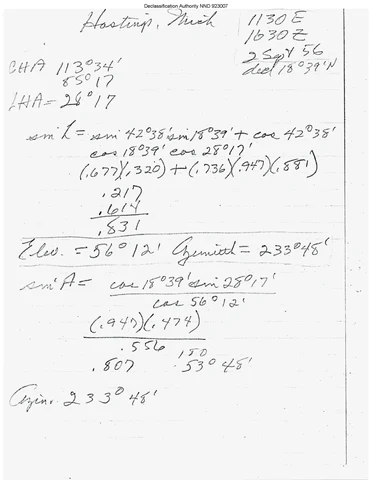 Declassification Authority NND 923007
Hastings, Mich
1130 E
1630 Z
2 Sept 56
decl 18°39'N
GHA 113°34'
85°17
LHA = 28°17
sin L = sin 42°38' sin 18°39' + cos 42°38'
cos 18°39' cos 28°17'
(.677)(.320) + (.736)(.947)(.881)
.217
.614
.831
Elev. = 56°12' Azimuth = 233°48'
sin A = cos 18°39' sin 28°17'
cos 56°12'
(.947)(.474)
.556
.807
180
53°48'
Azim. 233°48'